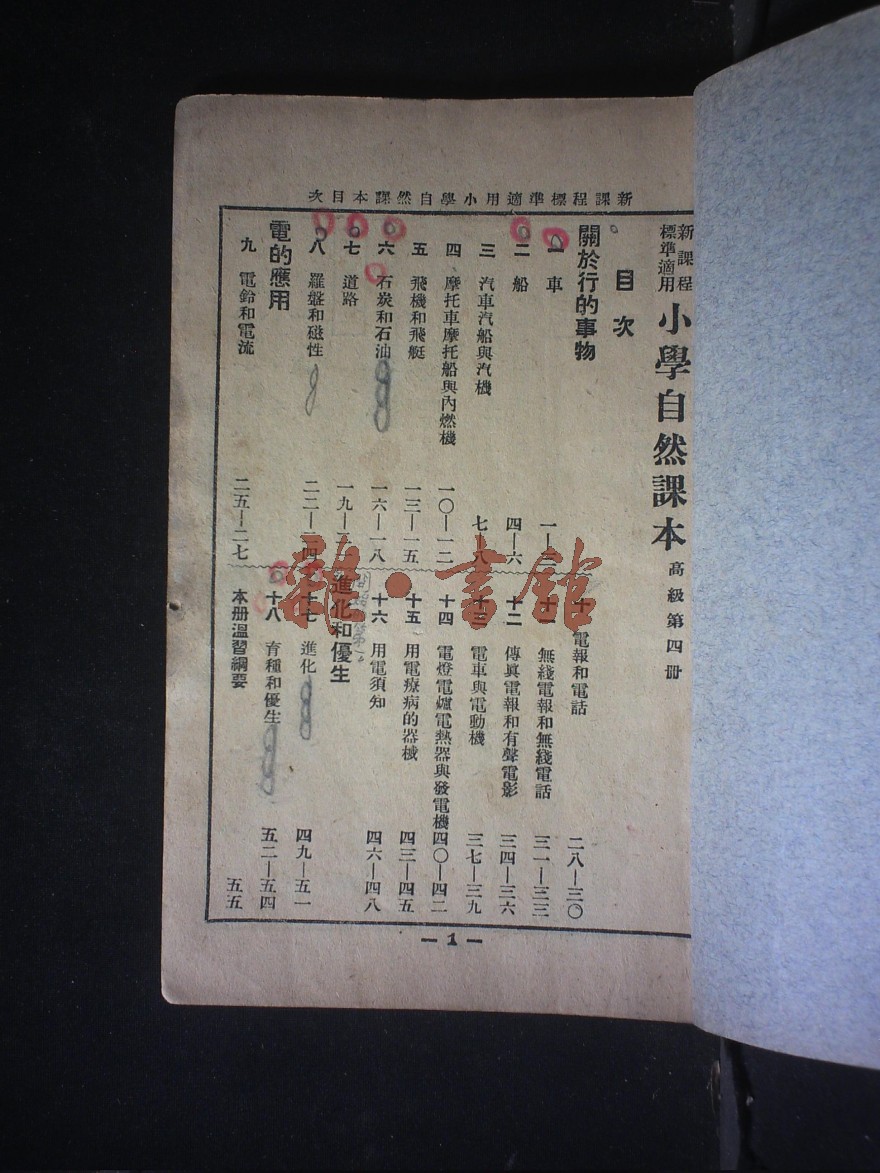 新課程標準適用小學自然課本目次
新課程
標準適用
小學自然課本
高級第四冊
目次
關於行的事物
一 車
二 船 四—六
三 汽車汽船與汽機 七—八
四 摩托車摩托船與內燃機 一〇—一二
五 飛機和飛艇 一三—一五
六 石炭和石油 一六—一八
七 道路
八 羅盤和磁性
電的應用
九 電鈴和電流 二五—二七
十 電報和電話 二八—三〇
十一 無綫電報和無綫電話 三一—三三
十二 傳眞電報和有聲電影 三四—三六
十三 電車與電動機 三七—三九
十四 電燈電爐電熱器與發電機 四〇—四二
十五 用電療病的器械 四三—四五
十六 用電須知 四六—四八
進化和優生
十七 進化 四九—五一
十八 育種和優生 五二—五四
本册溫習綱要 五五
— 1 —
雜·書館